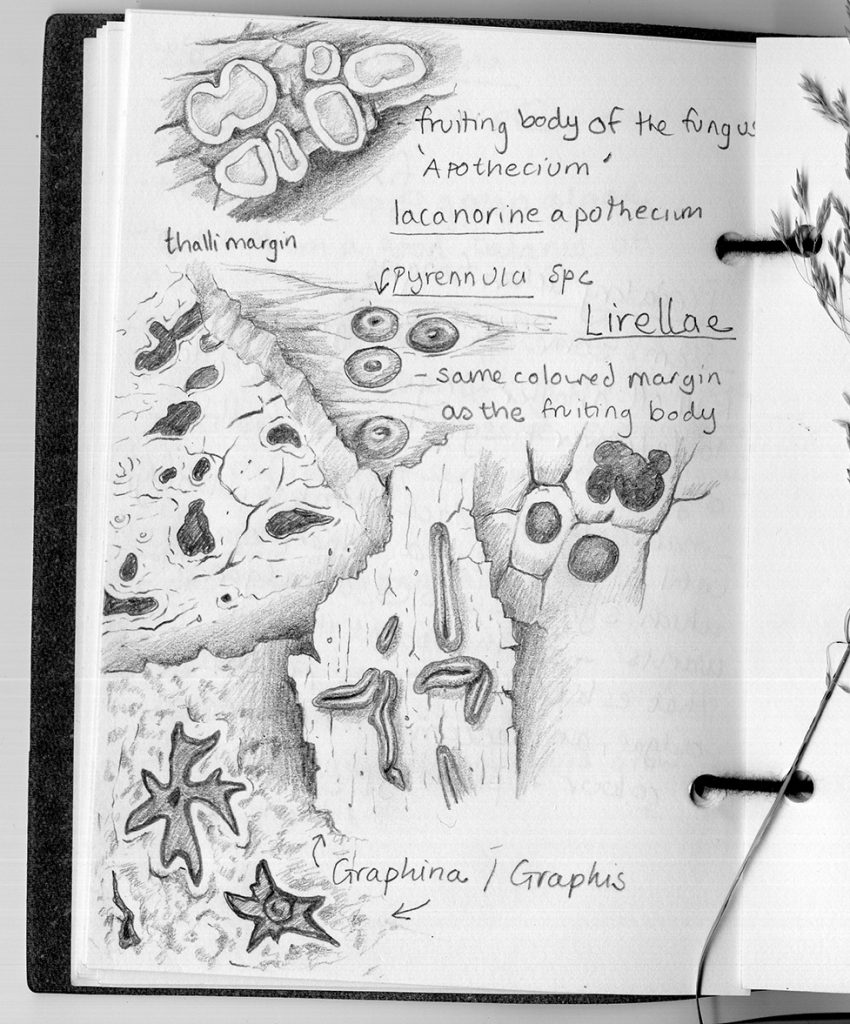 - fruiting body of the fungus
'Apothecium'
lacanorine apothecium
thalli margin
Pyrennula spc
Lirellae
- same coloured margin
as the fruiting body
Graphina / Graphis